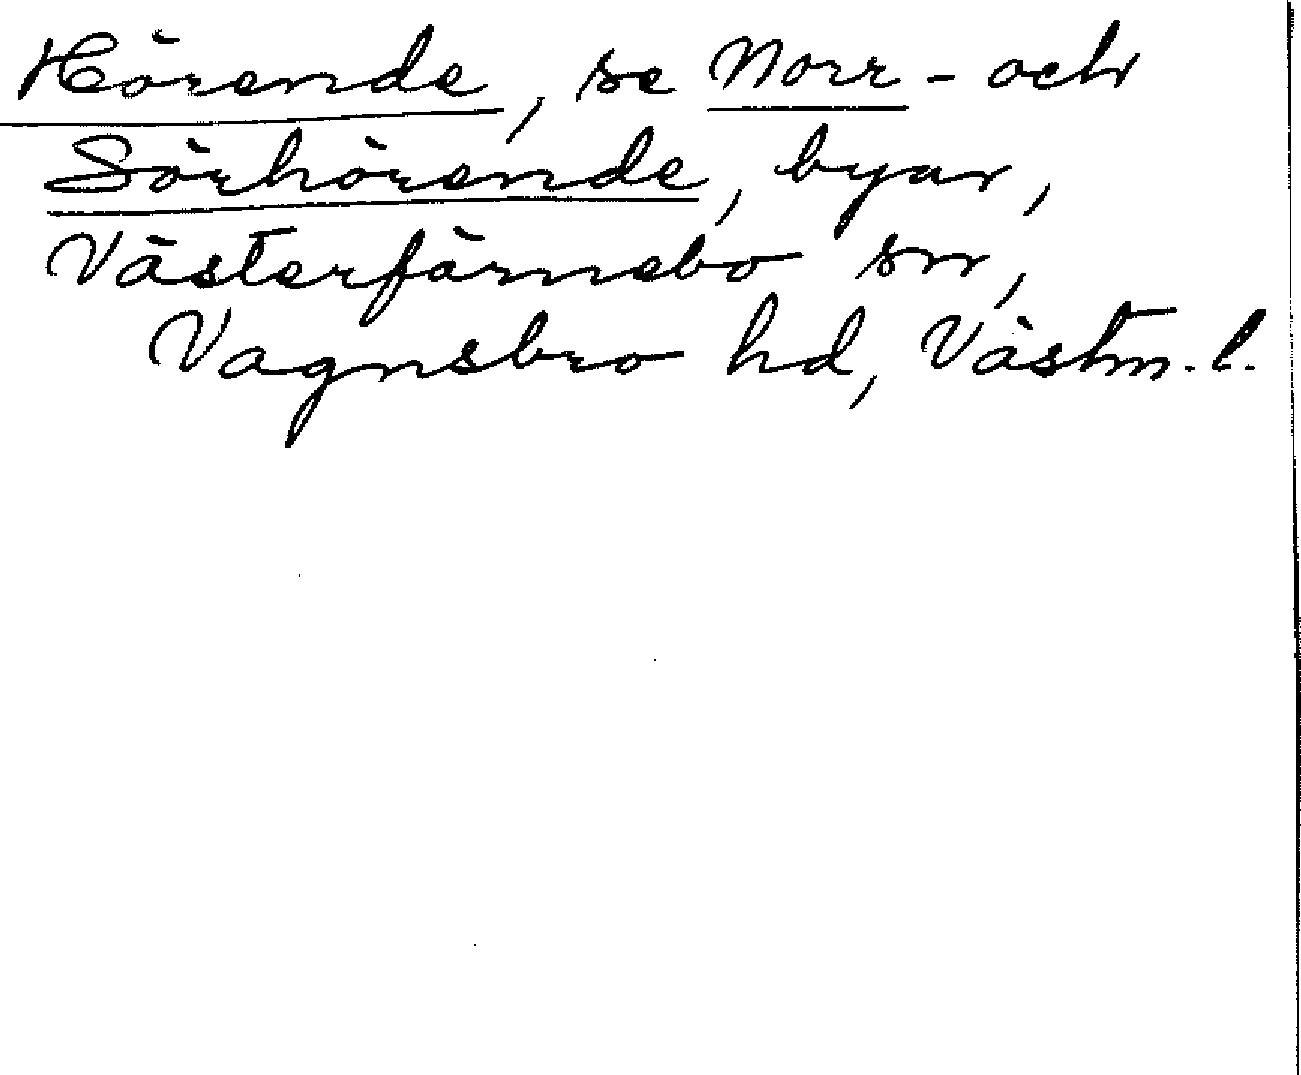 Hörende, se Norr- och
Sörhörende, byar,
Västerfärnebo sn,
Vagnsbro hd, Västm. l.